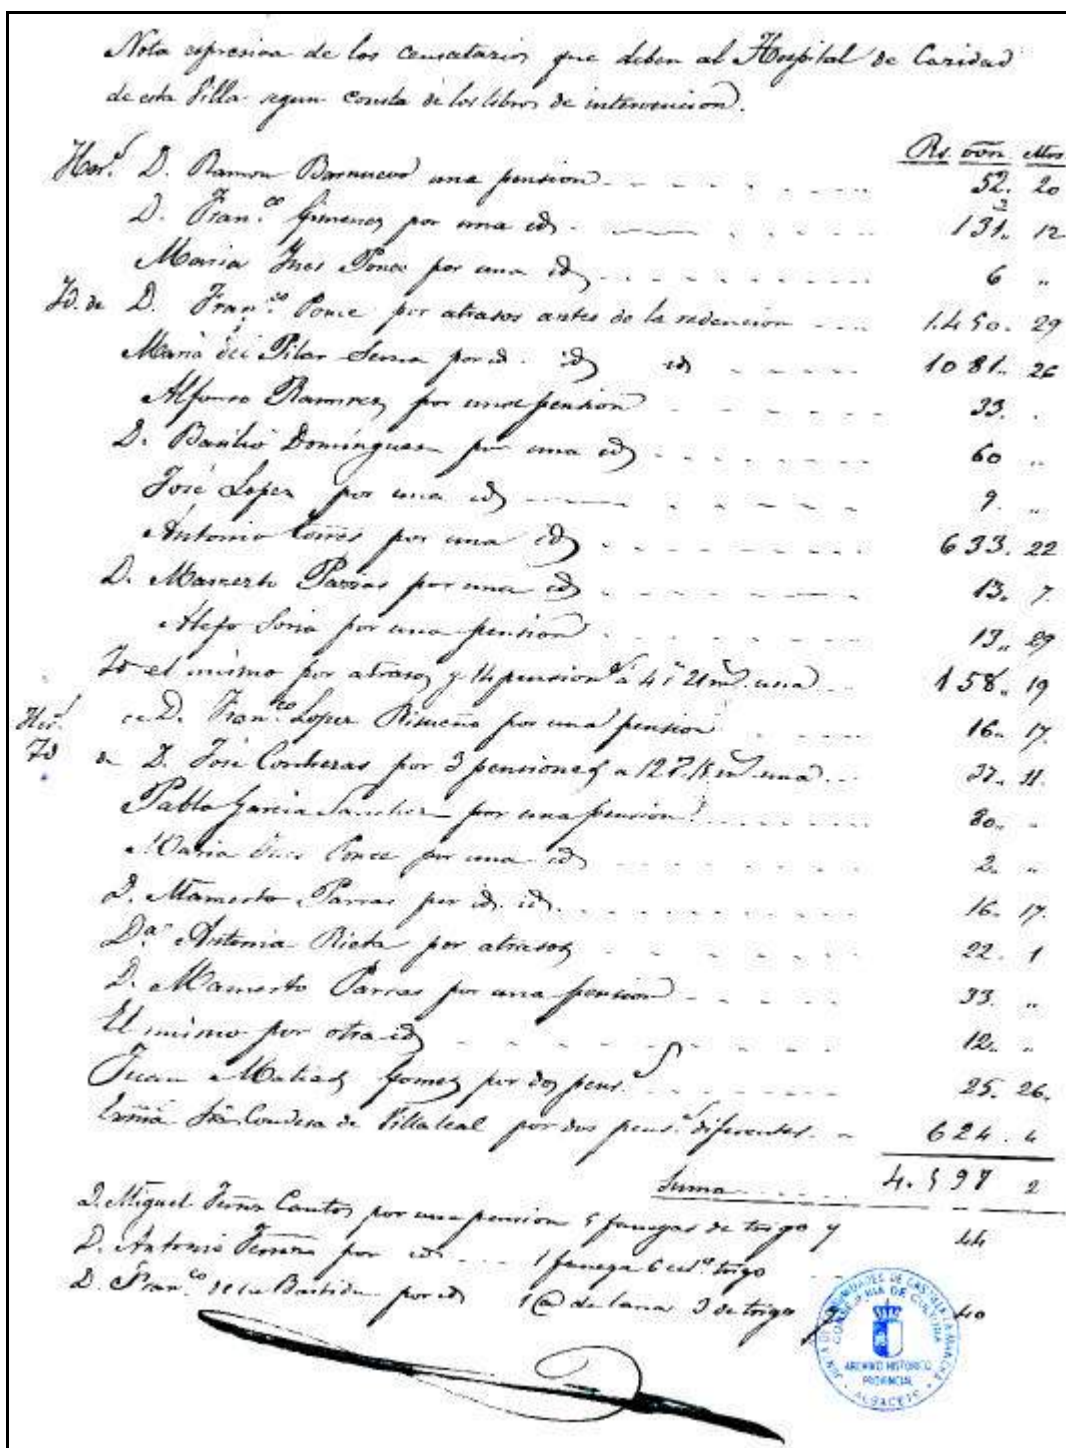 Nota espresiva de los censatarios que deben al Hospital de Caridad
de esta Villa segun consta de los libros de intervencion.
Rs von Mrs
Her.s D. Ramon Barnuevo una pension 52. 20
D. Fran.co Gimenez por una id 131. 12
Maria Ines Ponce por una id 6 "
Id. de D. Fran.co Ponce por atrasos antes de la redencion 1.450. 29
Maria del Pilar Serna por id. id id 1081. 26
Alfonso Ramirez por una pension 33. .
D. Basilio Dominguez por una id 60 "
José Lopez por una id 9. "
Antonio por una id 633. 22
D. Mamerto Parras por una id 13. 7.
Alejo Soria por una pension 13. 29
Id el mismo por atrasos y 14 pension.s á 4 r 21 m.s una 158. 19
Her.s de D. Fran.co Lopez Risueño por una pension 16. 17.
Id de D. José Contreras por 3 pensiones a 12 r. m.s una 37. 11.
Pablo Garcia Sanchez por una pension 80. "
Maria Ines Ponce por una id 2. "
D. Mamerto Parras por id. id. 16. 17.
D.a Antonia por atrasos 22. 1
D. Mamerto Parras por una pension 33. "
El mismo por otra id 12. "
Juan Matias Gomez por dos pens.s 25. 26.
Exma Sra Condesa de Villaleal por dos pens.s diferentes 624. 4
Suma 4.597 2
D. Miguel Cantos por una pension 5 fanegas de trigo y 44
D. Antonio por id. 1 fanega 6 cel.s trigo
D. Fran.co de la Bastida por id 1 @ de lana 3 de trigo y 40
JUNTA DE COMUNIDADES DE CASTILLA-LA MANCHA
CONSEJERIA DE CULTURA
ARCHIVO HISTORICO
PROVINCIAL
ALBACETE